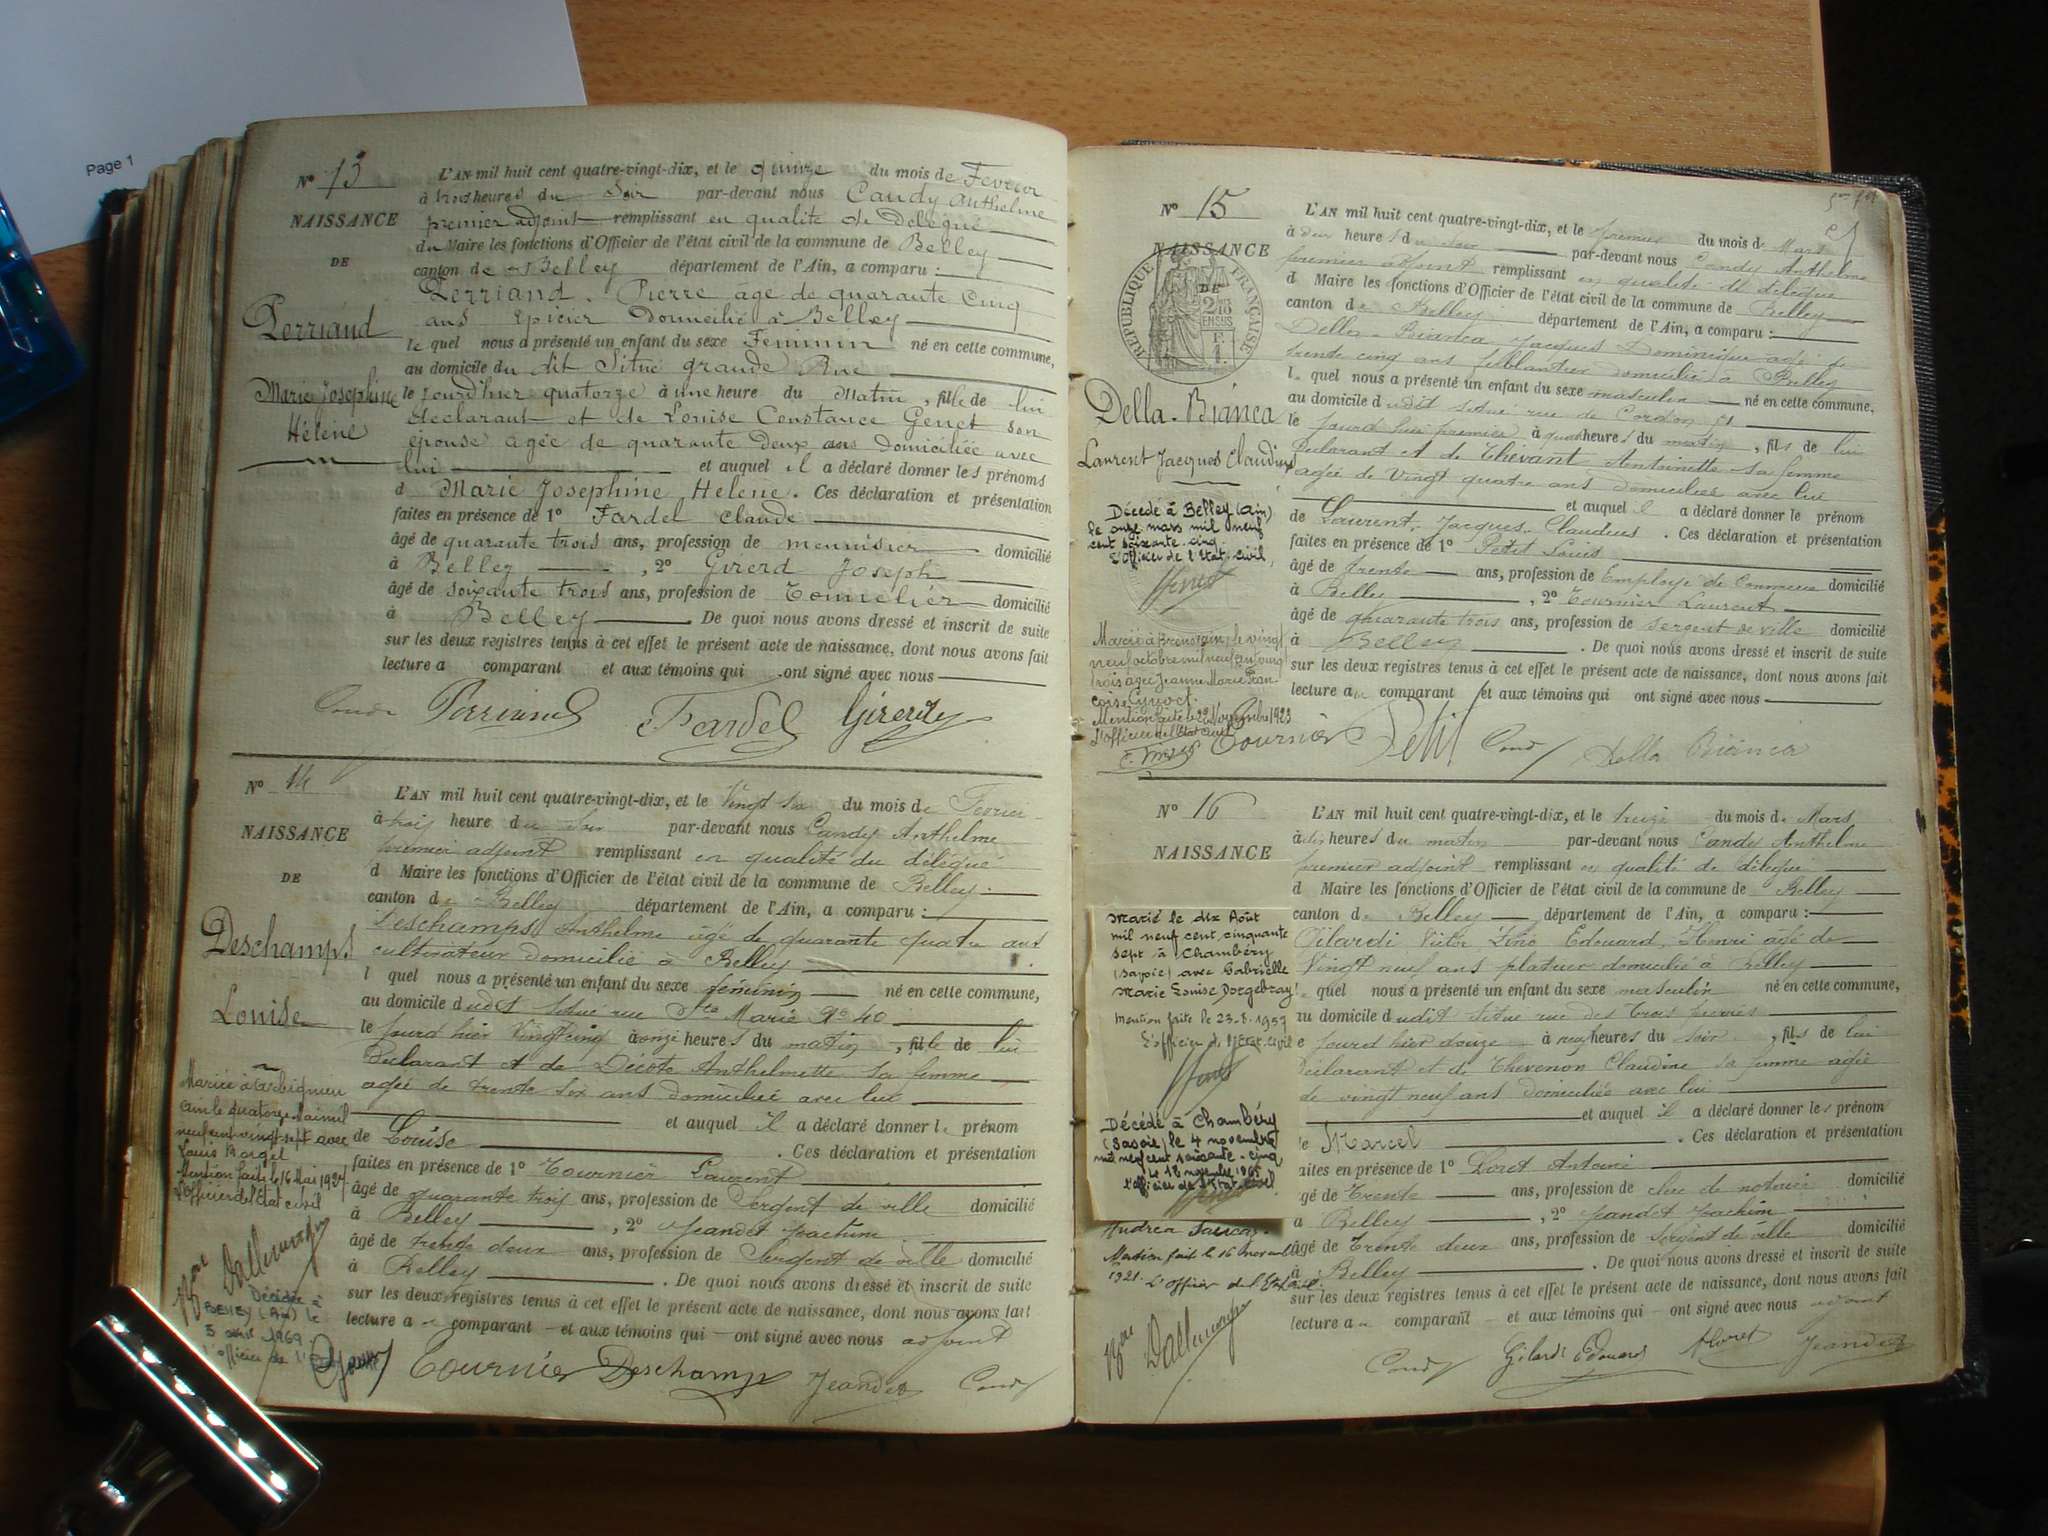 Page 1
N° 13
NAISSANCE
DE
Perriand
Marie Josephine
Hélène
L'AN mil huit cent quatre-vingt-dix, et le quinze du mois de Fevrier
à trois heures du Soir par-devant nous Candy Anthelme
premier adjoint remplissant en qualité de Délégué
du Maire les fonctions d'Officier de l'état civil de la commune de Belley
canton de Belley département de l'Ain, a comparu :
Perriand Pierre âgé de quarante Cinq
ans Epicier Domicilié à Belley
le quel nous a présenté un enfant du sexe Féminin né en cette commune,
au domicile du dit Situé grande Rue
le jourd'hier quatorze à une heure du Matin, fille de lui
déclarant et de Louise Constance Genet son
épouse âgée de quarante Deux ans domiciliée avec
lui et auquel il a déclaré donner les prénoms
d Marie Josephine Hélène. Ces déclaration et présentation
faites en présence de 1° Fardel Claude
âgé de quarante trois ans, profession de menuisier domicilié
à Belley, 2° Girerd Joseph
âgé de soixante trois ans, profession de Tonnelier domicilié
à Belley. De quoi nous avons dressé et inscrit de suite
sur les deux registres tenus à cet effet le présent acte de naissance, dont nous avons fait
lecture a comparant et aux témoins qui ont signé avec nous
Candy Perriand Fardel Girerd
N° 14
NAISSANCE
DE
Deschamps
Louise
Mariée à Arbignieu
Ain le quatorze Mai mil
neuf cent vingt-sept avec
Louis Borget
Mention faite le 16 Mai 1927
L'officier de l'état civil
Décédée à
BELLEY (Ain) le
1969
L'officier de l'
L'AN mil huit cent quatre-vingt-dix, et le Vingt six du mois de Fevrier
à trois heure du Soir par-devant nous Candy Anthelme
premier adjoint remplissant en qualité du délégué
d Maire les fonctions d'Officier de l'état civil de la commune de Belley
canton de Belley département de l'Ain, a comparu :
Deschamps Anthelme âgé de quarante quatre ans
cultivateur domicilié à Belley
l quel nous a présenté un enfant du sexe féminin né en cette commune,
au domicile dudit situé rue Ste Marie N° 40
le jourd'hier Vingt cinq à onze heures du matin, fille de lui
Déclarant et de Décote Anthelmette sa femme
agée de trente six ans domiciliée avec lui
et auquel il a déclaré donner le prénom
de Louise. Ces déclaration et présentation
faites en présence de 1° Tournier Laurent
âgé de quarante trois ans, profession de Sergent de ville domicilié
à Belley, 2° Jeandet Joachim
âgé de trente deux ans, profession de Sergent de ville domicilié
à Belley. De quoi nous avons dressé et inscrit de suite
sur les deux registres tenus à cet effet le présent acte de naissance, dont nous avons fait
lecture a comparant et aux témoins qui ont signé avec nous adjoint
Tournier Deschamps Jeandet Candy
N° 15
NAISSANCE
DE
RÉPUBLIQUE FRANÇAISE
Della-Bianca
Laurent Jacques Claudius
Décédé à Belley (Ain)
le onze mars mil neuf
cent soixante cinq
L'Officier de l'Etat Civil,
Marié à Brénod, Ain, le vingt
neuf octobre mil neuf cent vingt
trois avec Jeanne Marie Fran-
çoise Guyot.
Mention faite le 2 Novembre 1923
L'officier de l'Etat civil
L'AN mil huit cent quatre-vingt-dix, et le premier du mois de Mars
à deux heures du soir par-devant nous Candy Anthelme
premier adjoint remplissant en qualité de délégué
d Maire les fonctions d'Officier de l'état civil de la commune de Belley
canton de Belley département de l'Ain, a comparu :
Della-Bianca Jacques Dominique âgé de
trente cinq ans ferblantier domicilié à Belley
l quel nous a présenté un enfant du sexe masculin né en cette commune,
au domicile dudit situé rue de Cordon
le jourd'hui premier à quatre heures du matin, fils de lui
Déclarant et de Thévant Antoinette sa femme
agée de Vingt quatre ans domiciliée avec lui
et auquel il a déclaré donner le prénom
de Laurent-Jacques-Claudius. Ces déclaration et présentation
faites en présence de 1° Petit Louis
âgé de trente ans, profession de Employé de Commerce domicilié
à Belley, 2° Tournier Laurent
âgé de quarante trois ans, profession de sergent de ville domicilié
à Belley. De quoi nous avons dressé et inscrit de suite
sur les deux registres tenus à cet effet le présent acte de naissance, dont nous avons fait
lecture au comparant et aux témoins qui ont signé avec nous
Tournier Petit Candy Della Bianca
N° 16
NAISSANCE
Marié le dix Août
mil neuf cent cinquante
sept à Chambéry
(Savoie) avec Gabrielle
Marie Louise Dorgebray
mention faite le 23.8.1957
L'officier de l'Etat Civil
Décédé à Chambéry
(Savoie) le 4 novembre
mil neuf cent soixante-cinq
le 18 novembre 1965
L'officier de l'Etat Civil
Andréa
Mention fait le 16
1921. L'Officier de l'Etat civil.
L'AN mil huit cent quatre-vingt-dix, et le treize du mois de Mars
à dix heures du matin par-devant nous Candy Anthelme
premier adjoint remplissant en qualité de délégué
d Maire les fonctions d'Officier de l'état civil de la commune de Belley
canton de Belley département de l'Ain, a comparu :
Gilardi Victor Edouard Henri âgé de
Vingt neuf ans platrier domicilié à Belley
quel nous a présenté un enfant du sexe masculin né en cette commune,
au domicile dudit situé rue des Trois
e jourd'hier douze à heures du Soir, fils de lui
déclarant et de Thevenon Claudine sa femme agée
de vingt neuf ans domiciliée avec lui
et auquel il a déclaré donner les prénom
de Marcel. Ces déclaration et présentation
aites en présence de 1° Loret Antoine
gé de Trente ans, profession de clerc de notaire domicilié
à Belley, 2° Jeandet Joachim
âgé de Trente deux ans, profession de sergent de ville domicilié
à Belley. De quoi nous avons dressé et inscrit de suite
sur les deux registres tenus à cet effet le présent acte de naissance, dont nous avons fait
lecture a comparant et aux témoins qui ont signé avec nous adjoint
Candy Gilardi Edouard Loret Jeandet